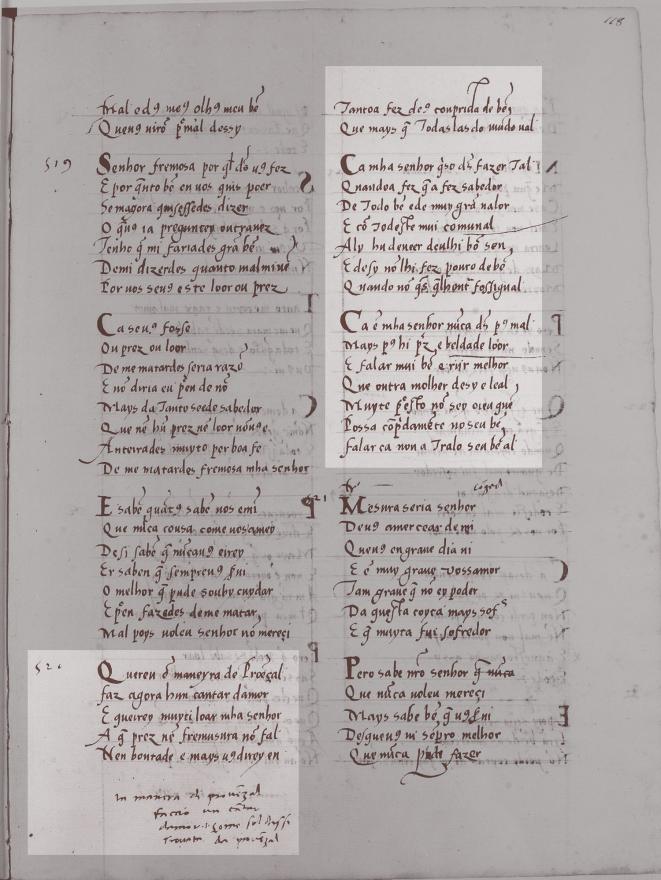 118
mal e d9 me9 olh9 meu bē
Quen9 uirō p mal dessy
519
Senhor fremosa por q̄l d'o u9 fez
E por q̄nto bē en uos quis poer
Se magora quisessedes dizer
O qu9 ia preguntey outra uez
Tenho q̄ mi fariades grā bē
De mi dizerdes quanto mal mi uē
Por uos se u9 este loor ou prez
Ca se u9 fosse
Ou prez ou loor
De me matardes seria razō
E nō diria eu pōr en de nō
Mays da tanto seede sabedor
Que nē hū prez nē loor nō u9 e
Ante irades muyto per boa fe
De me matardes fremosa mha senhor
E sabē quāt9 sabē uos emi
Que nūca cousa come uos amey
Desi sabē q̄ nūca u9 eirey
Er saben q̄ sempre u9 sui
O melhor q̄ pude soub' cuydar
E pōen fazedes de me matar
Mal poys uoleu senhor nō mereçi
520
Quereu ē maneyra de Proēçal
fazer agora hun cantar damor
E querrey muyti loar mha senhor
A q̄ prez nē fremusura nō fal
Nen bondade e mays u9 direy en
in maneira di provenzal
Tanto a fez de9 comprida de bē
Que mays q̄ Todas las do mūdo ual
Ca mha senhor q̄so d's fazer Tal
Quando a fez q̄ a fez sabedor
De Todo bē e de muy grā ualor
E cō todeste mui comunal
Aly hu deuer deulhi bō sen
E desy nō lhi fez pouco de bē
Quando nō q̄s q̄lhout foss igual
Ca ē mha senhor nūca d's p9 mal
Mays p9 hi p̄z e beldade loor
E falar mui bē e rijr melhor
Que outra molher desy e leal
Muyte p esto nō sey oieu quē
Possa cōpdamēte no seu bē
falar ca non a Tralo seu bē al
521
Mesura seria senhor
De u9 amercear de mi
Que u9 en graue dia ui
E ē muy graue uossamor
Tam graue q̄ nō ey poder
Da questa coyta mays sofr
E q̄ muyta fui sofredor
Pero sabe nrō senhor q̄ nūca
Que nūca uoleu mereçi
Mays sabe bē q̄ u9 sui
Desque u9 ui sēpro melhor
Que nūca pude fazer